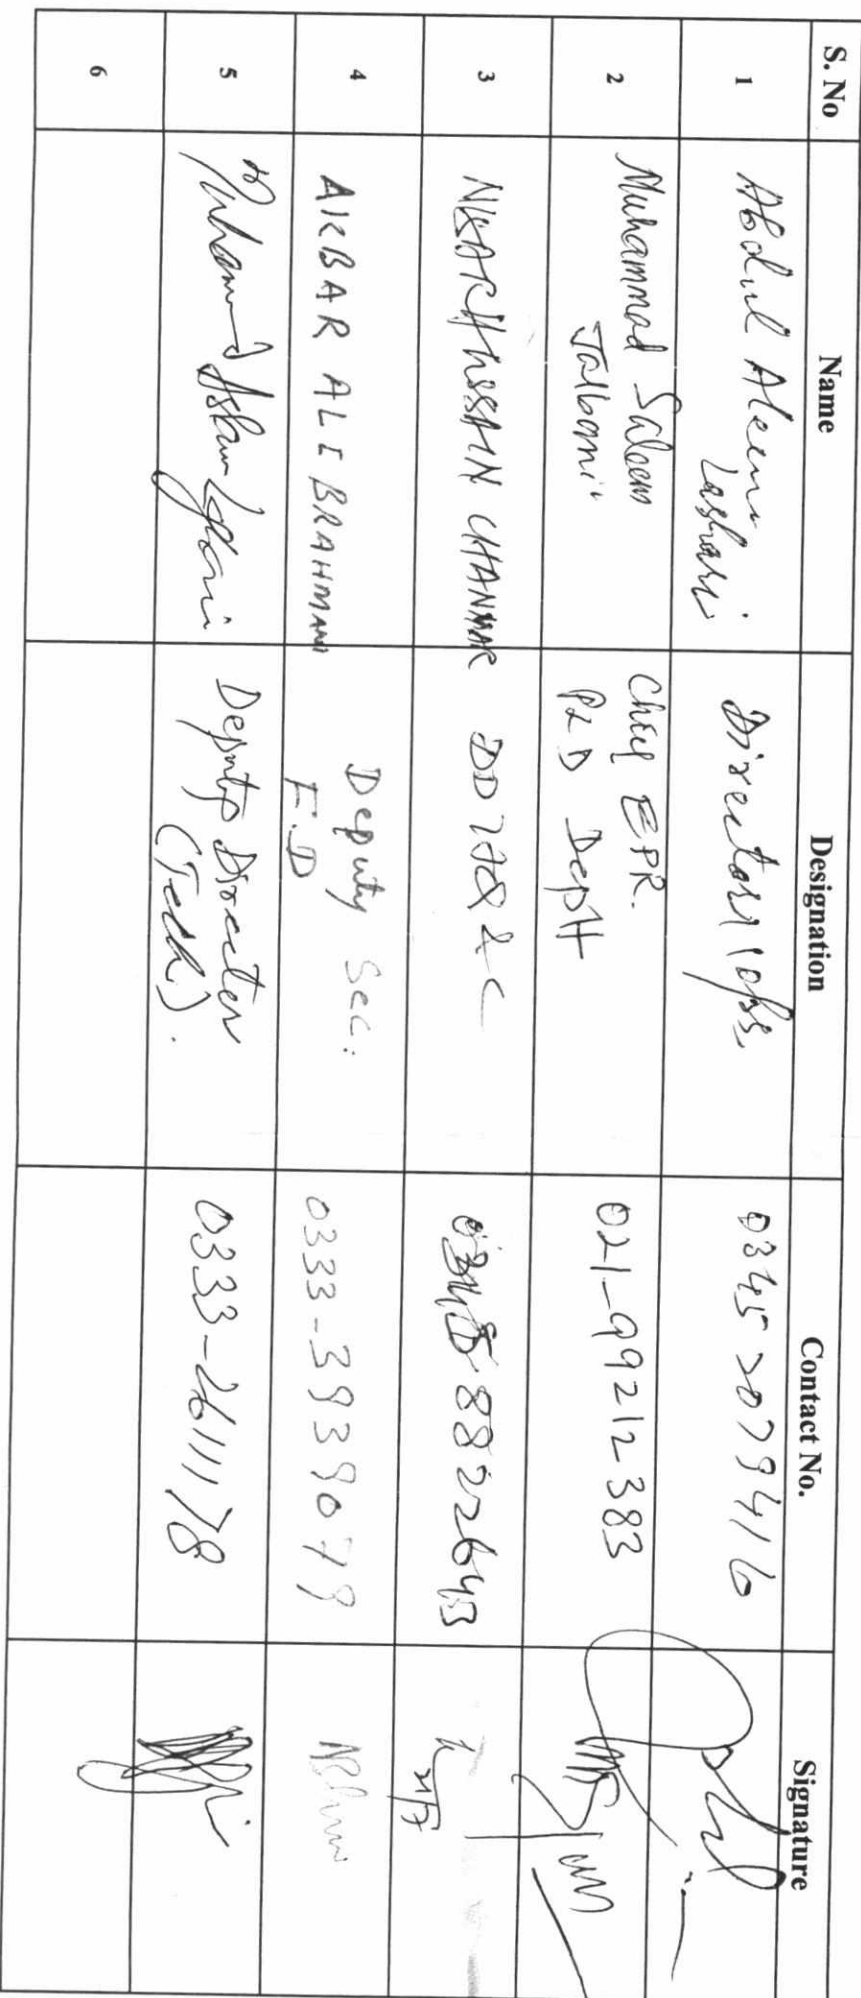 S. No Name Designation Contact No. Signature
1 Abdul Aleem Lashari Director (ops) 0345 2079416
2 Muhammad Saleem Jalbani Chief EPR. P&D Deptt 021-99212383
3 NISAR HUSSAIN CHANNAR DD 8822643
4 AKBAR ALI BRAHMANI Deputy Sec. F.D 0333-3939079
5 Muhammad Deputy Director (Tech). 0333-2611178
6